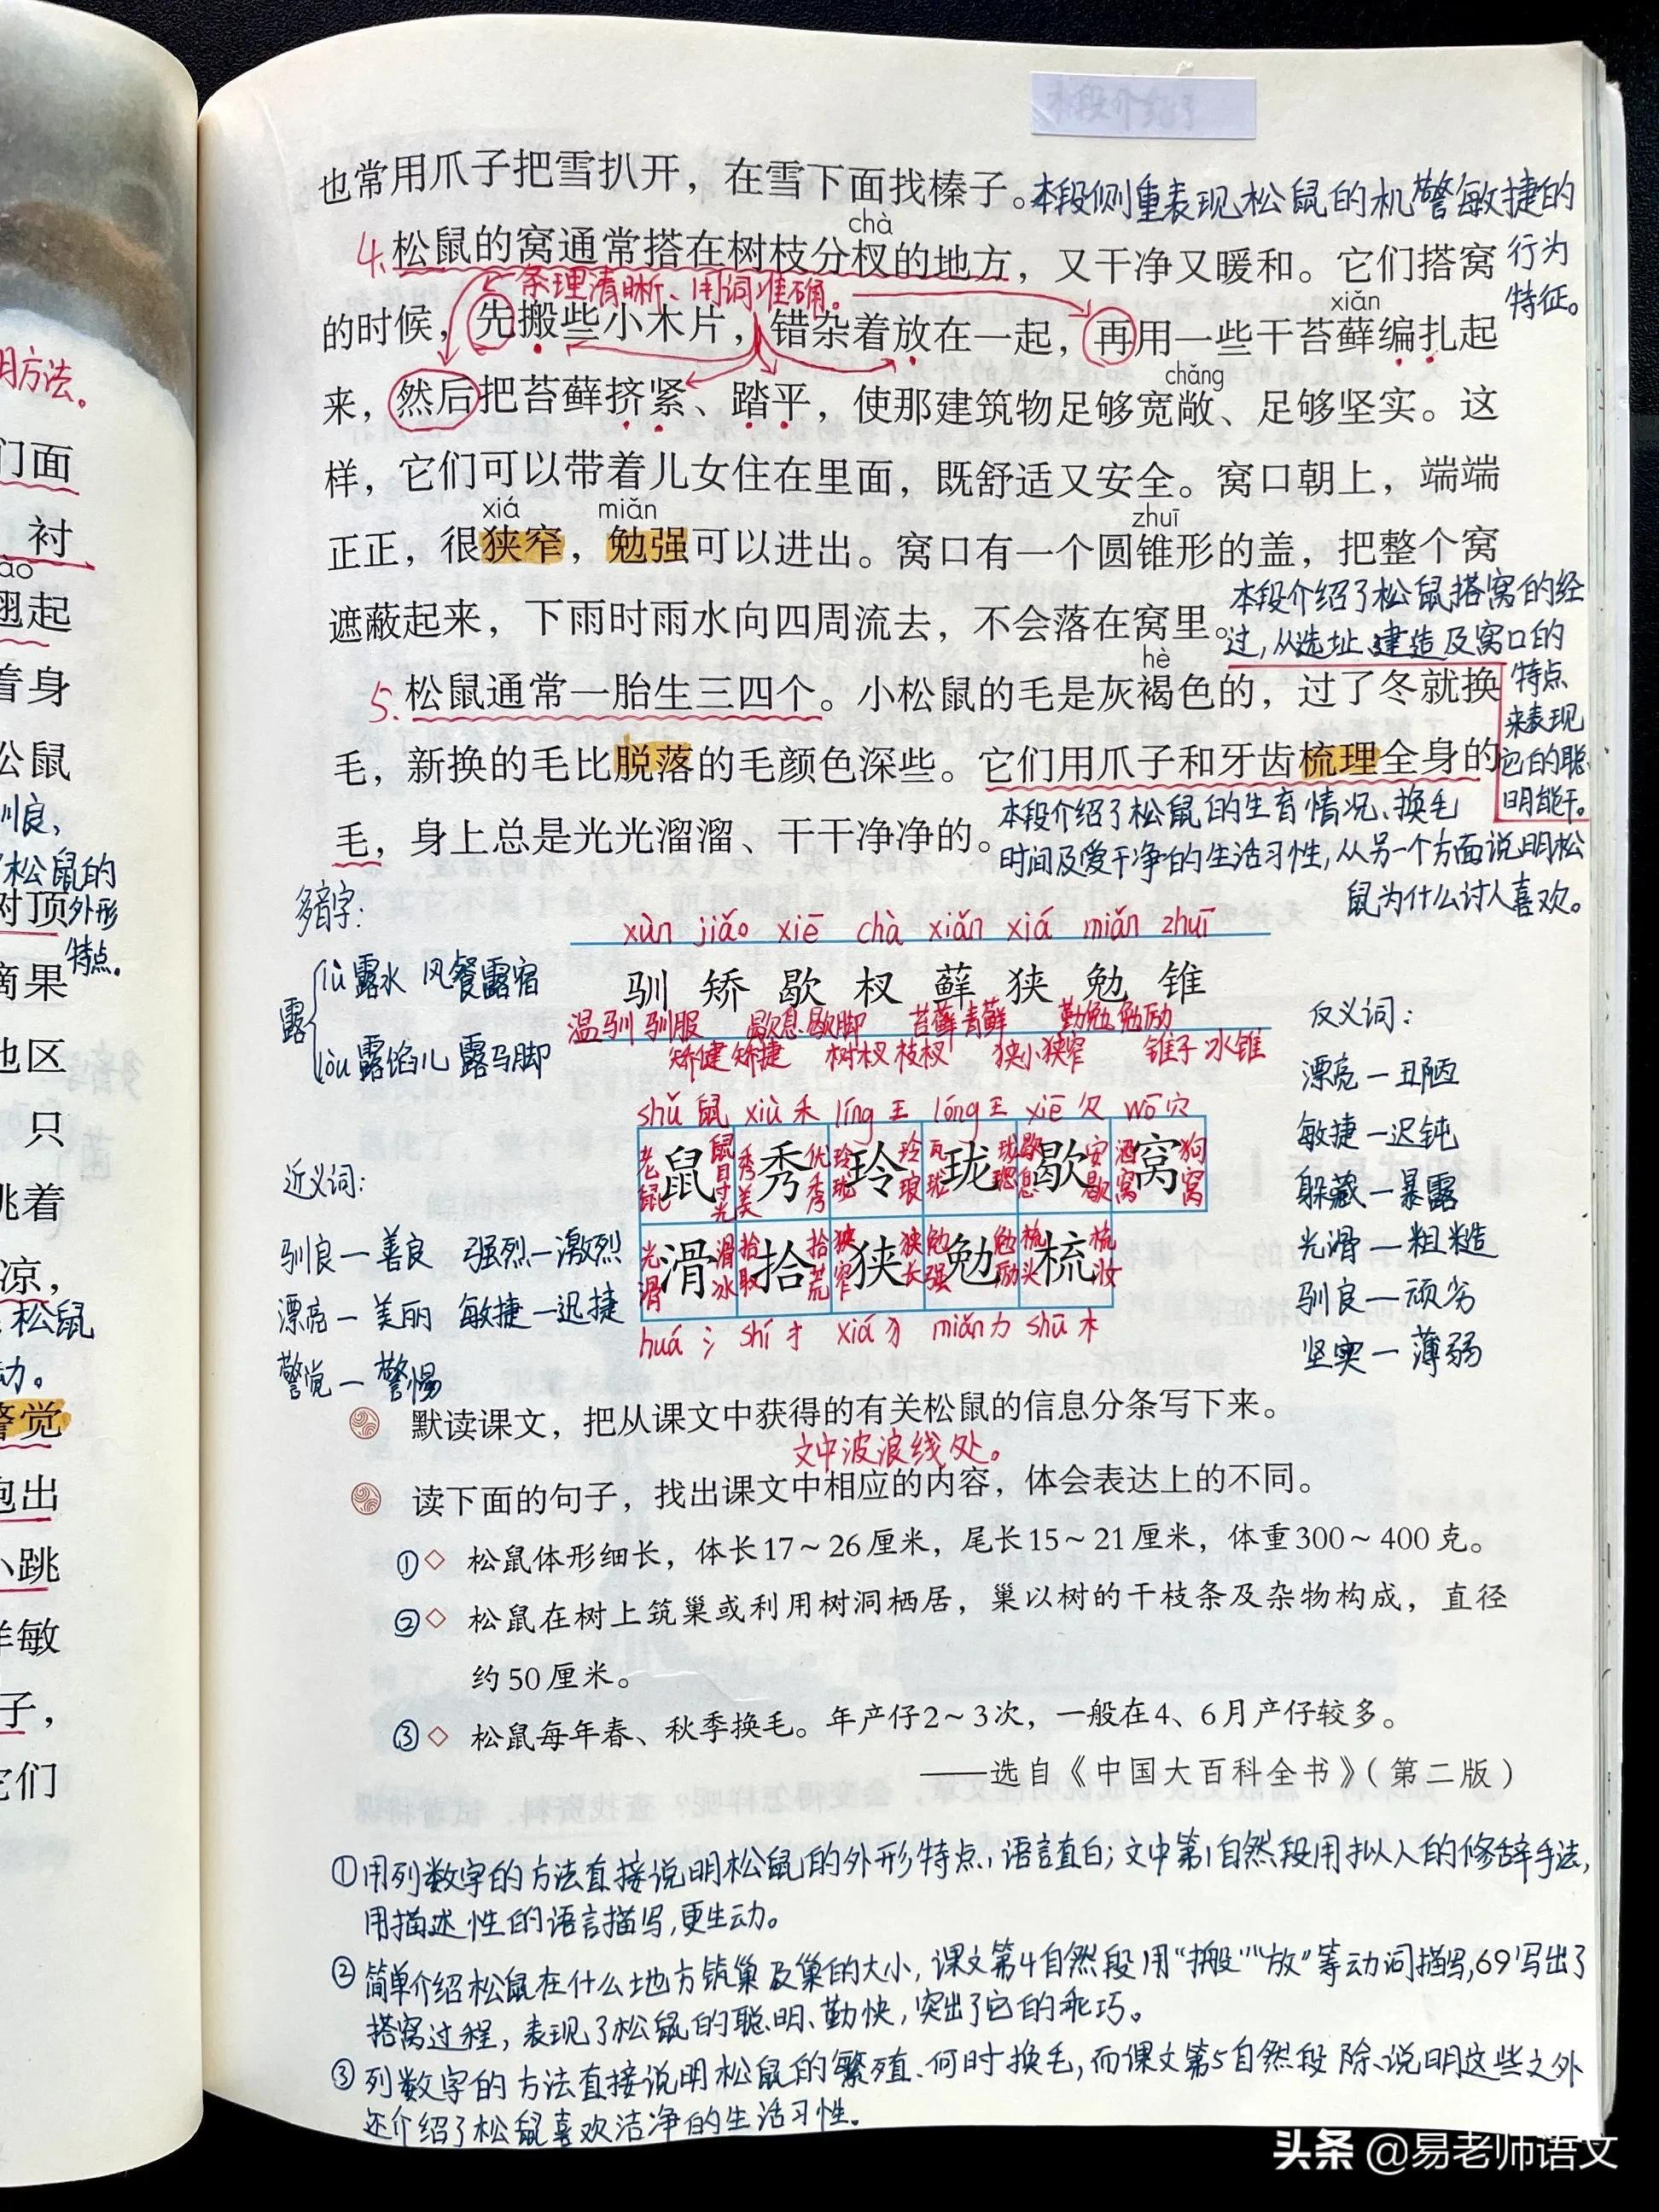 本段介绍了
也常用爪子把雪扒开，在雪下面找榛子。本段侧重表现松鼠的机警敏捷的
行为
特征。
chà
4.松鼠的窝通常搭在树枝分杈的地方，又干净又暖和。它们搭窝
条理清晰、用词准确。
xiǎn
的时候，先搬些小木片，错杂着放在一起，再用一些干苔藓编扎起
chǎng
来，然后把苔藓挤紧、踏平，使那建筑物足够宽敞、足够坚实。这
样，它们可以带着儿女住在里面，既舒适又安全。窝口朝上，端端
xiá miǎn zhuī
正正，很狭窄，勉强可以进出。窝口有一个圆锥形的盖，把整个窝
遮蔽起来，下雨时雨水向四周流去，不会落在窝里。
本段介绍了松鼠搭窝的经
过，从选址、建造及窝口的
特点
来表现
它的聪
明能干。
hè
5.松鼠通常一胎生三四个。小松鼠的毛是灰褐色的，过了冬就换
毛，新换的毛比脱落的毛颜色深些。它们用爪子和牙齿梳理全身的
毛，身上总是光光溜溜、干干净净的。
本段介绍了松鼠的生育情况、换毛
时间及爱干净的生活习性，从另一个方面说明松
鼠为什么讨人喜欢。
多音字：
露
lù 露水 风餐露宿
lòu 露馅儿 露马脚
xùn jiǎo xiē chà xiǎn xiá miǎn zhuī
驯 矫 歇 杈 藓 狭 勉 锥
温驯 驯服 歇息 歇脚 苔藓 青藓 勤勉 勉励
矫健 矫捷 树杈 枝杈 狭小 狭窄 锥子 冰锥
shǔ 鼠 xiù 禾 líng 王 lóng 王 xiē 欠 wō 穴
鼠 秀 玲 珑 歇 窝
老鼠 鼠目寸光 秀美 优秀 玲珑 玲琅 瓦珑 珑璁 歇息 安歇 酒窝 狗窝
滑 拾 狭 勉 梳
光滑 滑冰 拾取 拾荒 狭窄 狭长 勉强 勉励 梳头 梳妆
huá 氵 shí 扌 xiá 犭 miǎn 力 shū 木
近义词：
驯良—善良 强烈—激烈
漂亮—美丽 敏捷—迅捷
警觉—警惕
反义词：
漂亮—丑陋
敏捷—迟钝
躲藏—暴露
光滑—粗糙
驯良—顽劣
坚实—薄弱
默读课文，把从课文中获得的有关松鼠的信息分条写下来。
文中波浪线处。
读下面的句子，找出课文中相应的内容，体会表达上的不同。
①◇ 松鼠体形细长，体长17～26厘米，尾长15～21厘米，体重300～400克。
②◇ 松鼠在树上筑巢或利用树洞栖居，巢以树的干枝条及杂物构成，直径
约50厘米。
③◇ 松鼠每年春、秋季换毛。年产仔2～3次，一般在4、6月产仔较多。
——选自《中国大百科全书》（第二版）
①用列数字的方法直接说明松鼠的外形特点，语言直白；文中第1自然段用拟人的修辞手法，
用描述性的语言描写，更生动。
②简单介绍松鼠在什么地方筑巢及巢的大小，课文第4自然段用“搬”“放”等动词描写，69写出了
搭窝过程，表现了松鼠的聪明、勤快，突出了它的乖巧。
③列数字的方法直接说明松鼠的繁殖、何时换毛，而课文第5自然段除说明这些之外
还介绍了松鼠喜欢洁净的生活习性。
明方法。
们面
衬
翘起
着身
松鼠
驯良，
松鼠的
树顶外形
特点。
摘果
地区
只
跳着
凉，
松鼠
动。
警觉
跑出
小跳
样敏
子，
它们
头条 @易老师语文